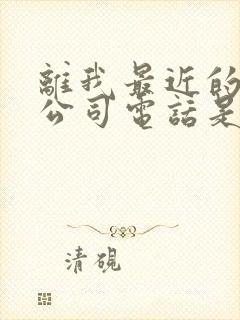 離我最近的
公司電話是
清硯